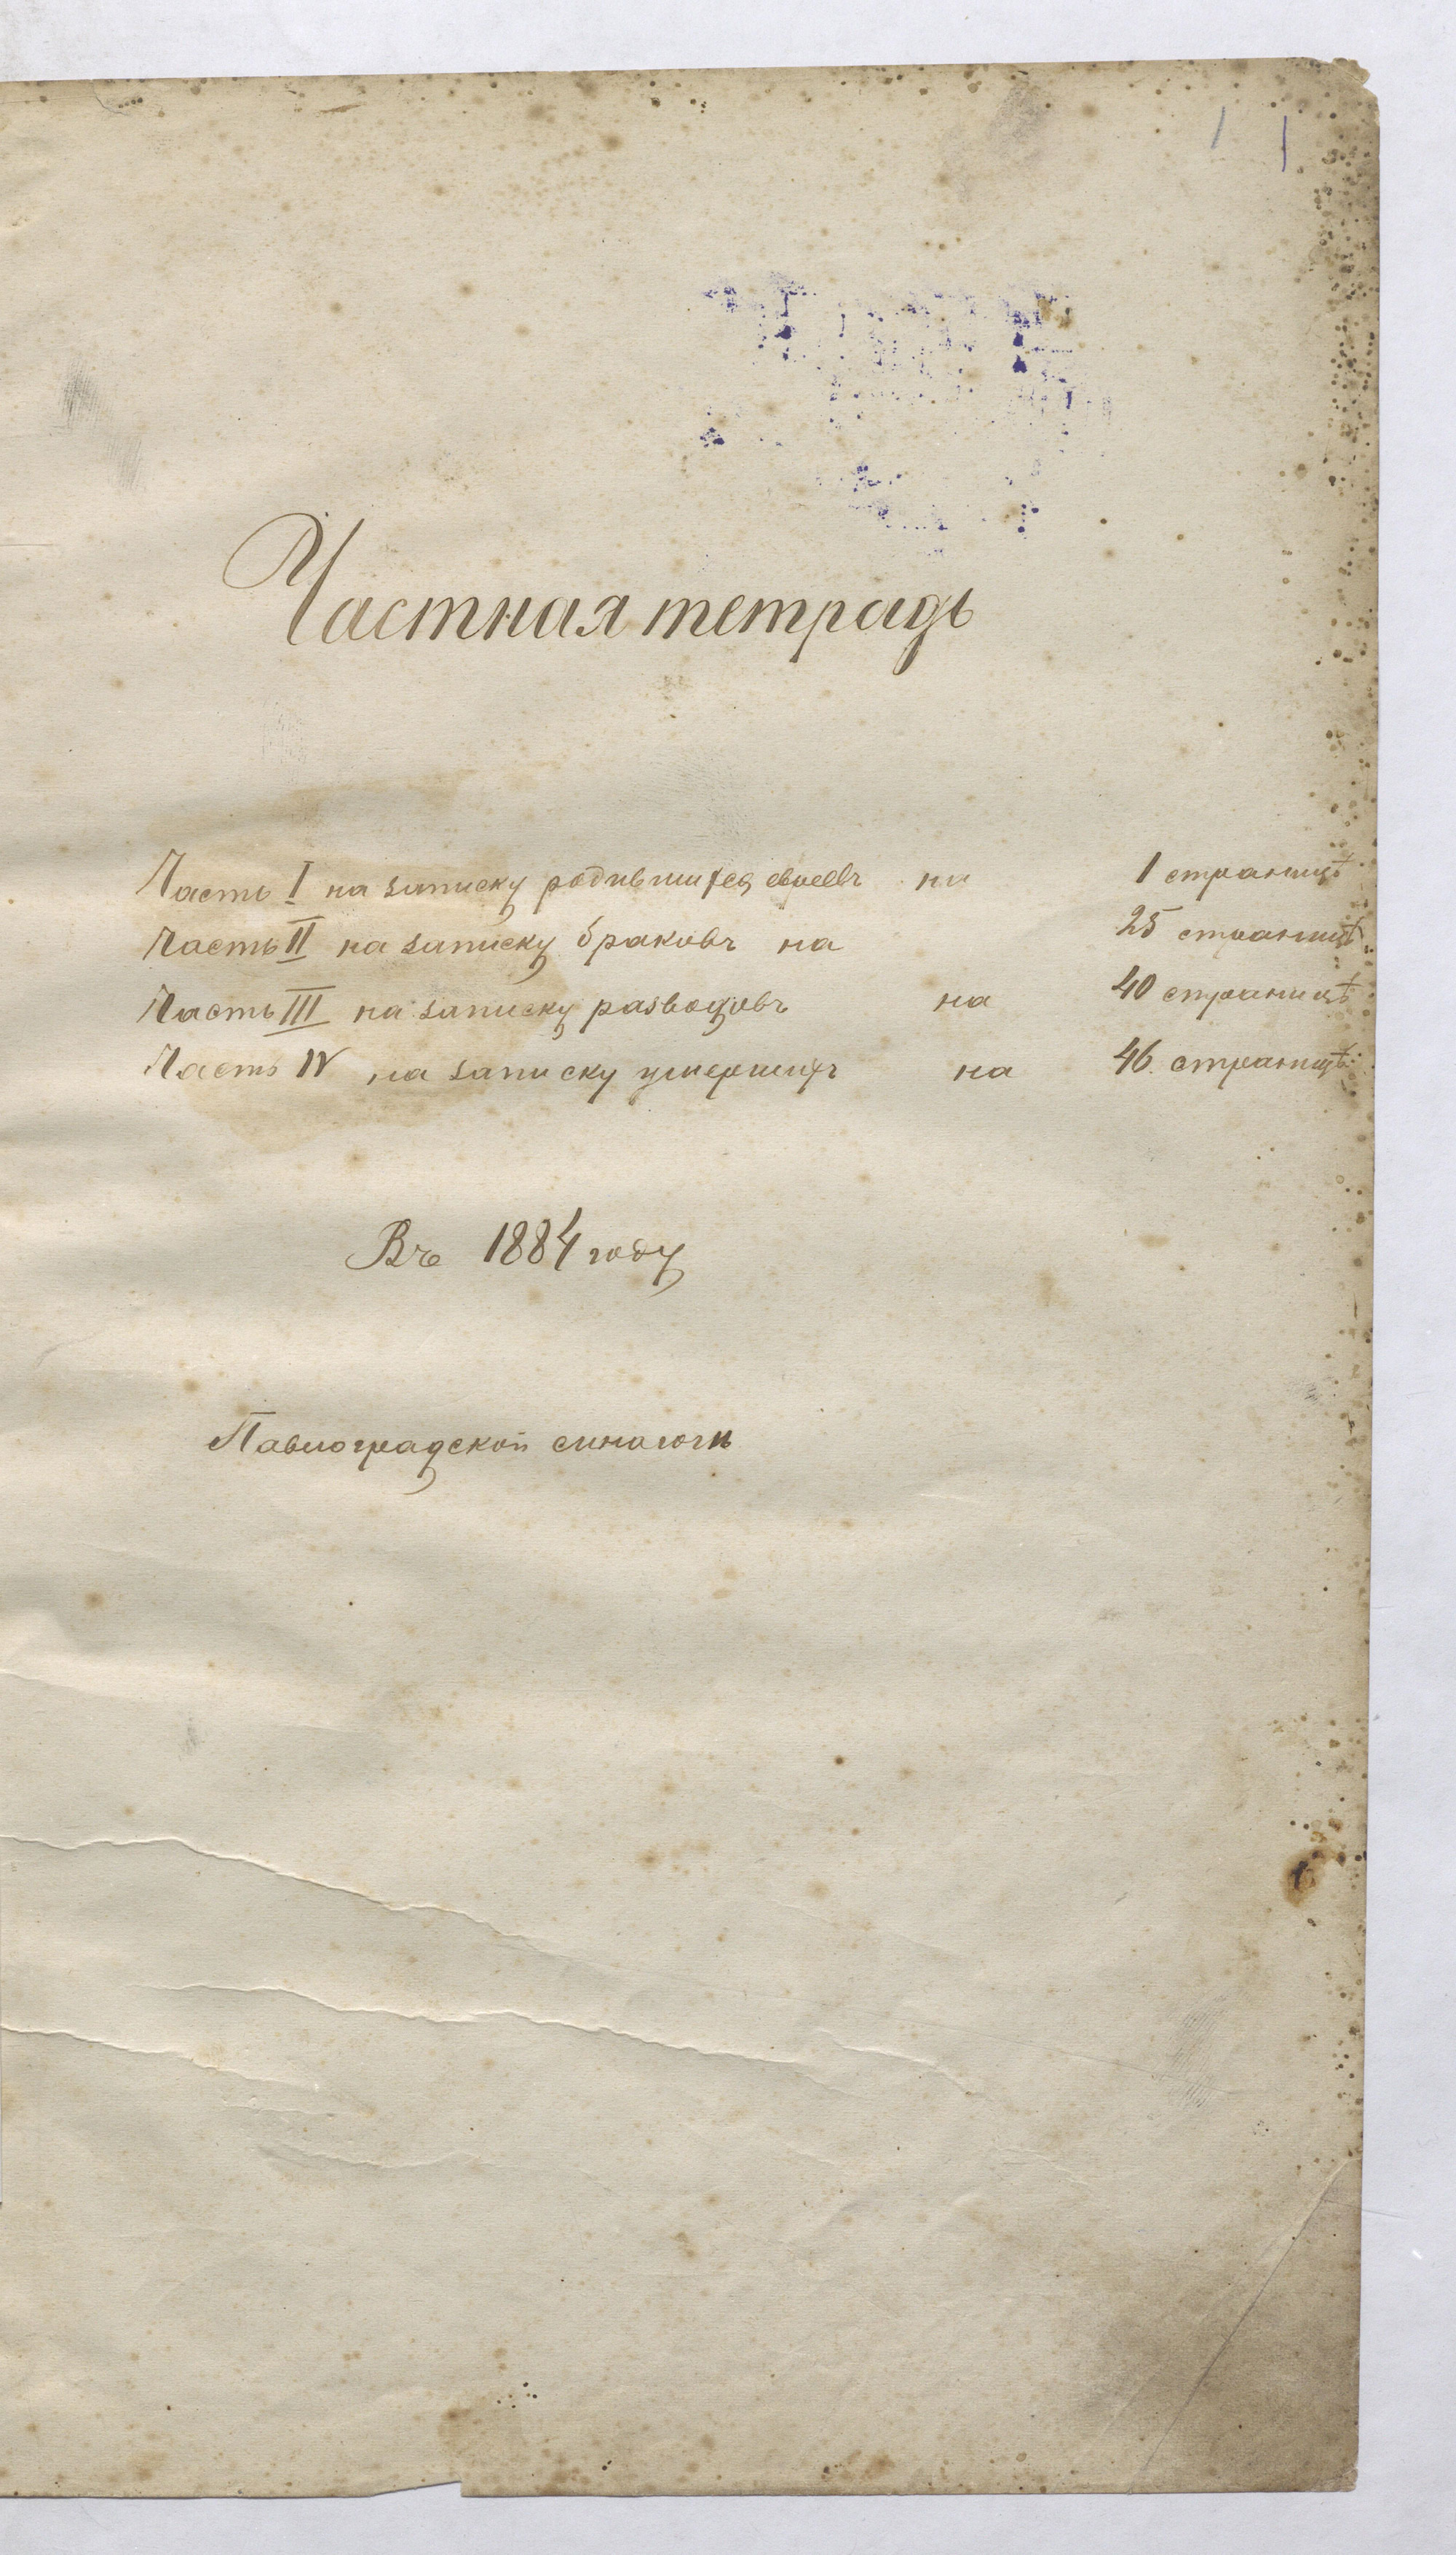 Частная тетрадь
Часть I на записку родившихся евреевъ на 1 страницѣ
Часть II на записку браковъ на 25 страницѣ
Часть III на записку разводовъ на 40 страницѣ
Часть IV на записку умершихъ на 46 страницѣ
Въ 1884 году
Павлоградской синагоги